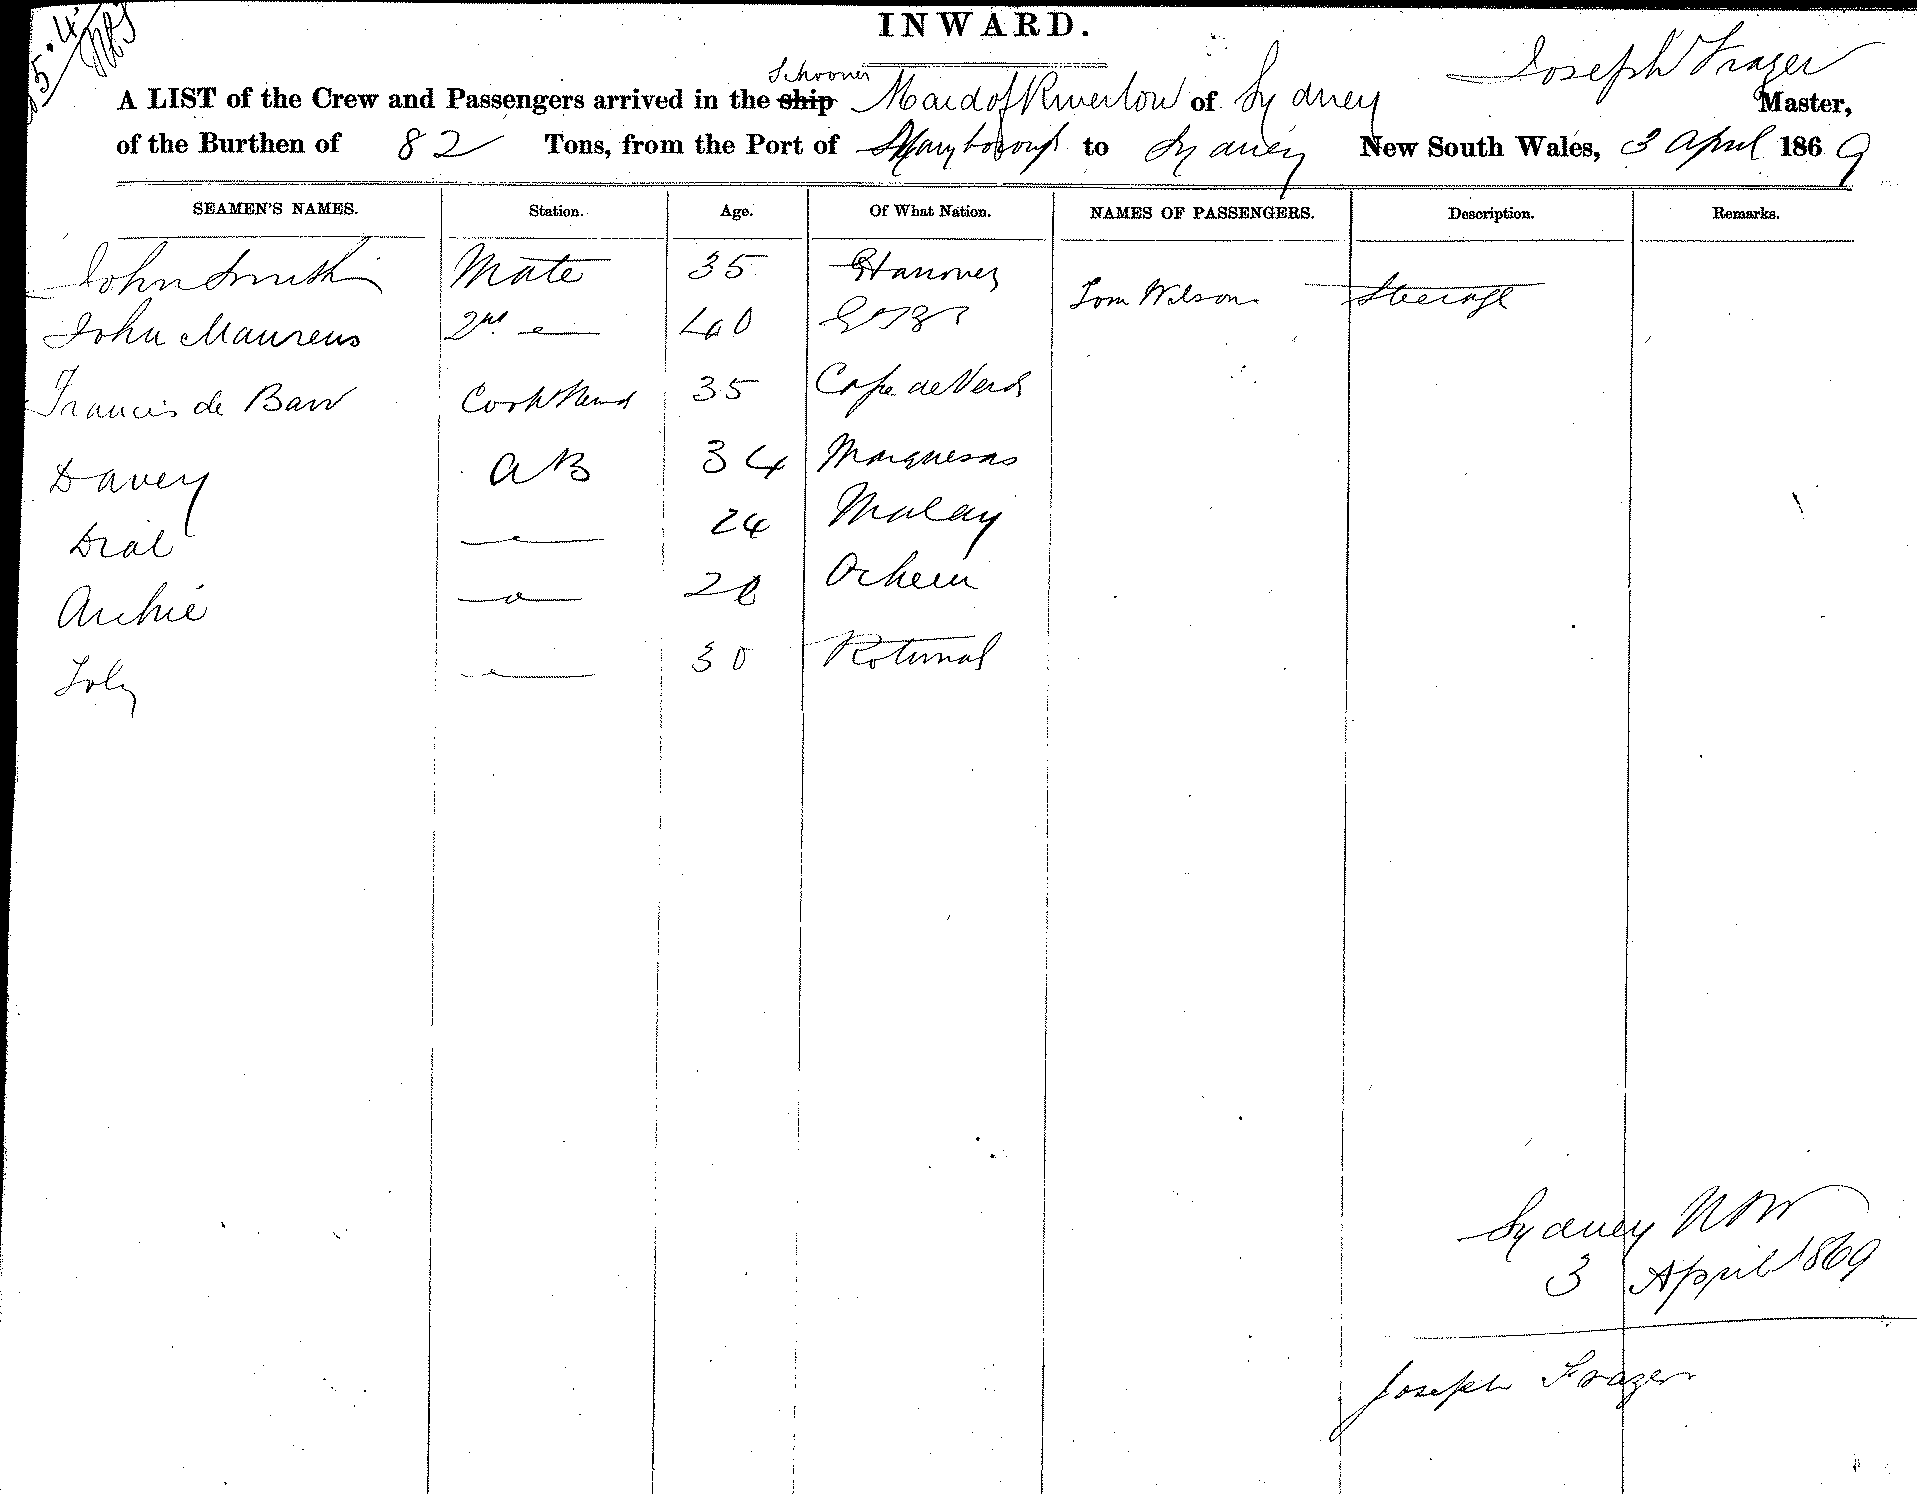 5.4
INWARD.
Joseph Frazer
Schooner
A LIST of the Crew and Passengers arrived in the ship Maid of Riverton of Sydney Master,
of the Burthen of 82 Tons, from the Port of Maryborough to Sydney New South Wales, 3 April 1869
SEAMEN'S NAMES. Station. Age. Of What Nation. NAMES OF PASSENGERS. Description. Remarks.
John Smith Mate 35 Hanover Tom Wilson Steerage
John 2nd 40
Francis de Barr Cook 35 Cape de Verds
Davey AB 34 Marquesas
Dial 24 Malay
Archie 28
Toby 30 Rotumah
Sydney NSW
3 April 1869
Joseph Frazer